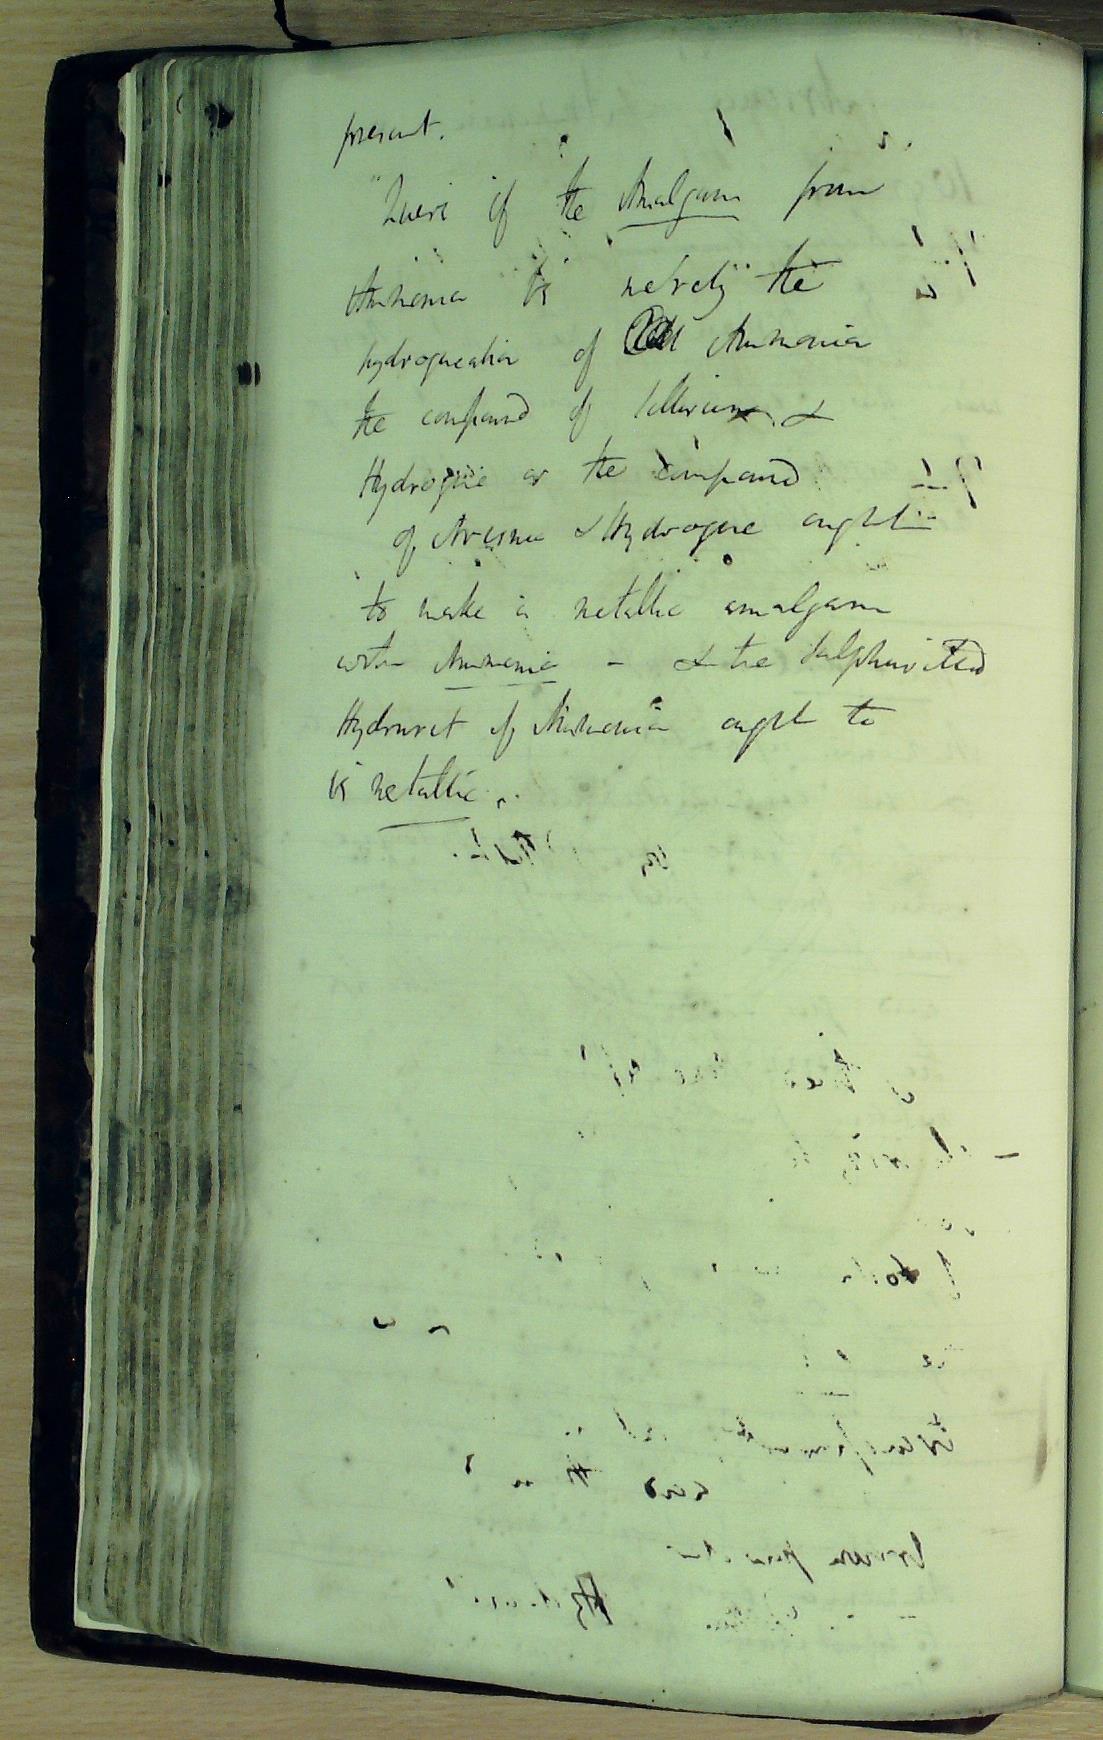 present.
Quere if the Amalgam from
Ammonia be merely the
hydrogenation of Ammonia
the compound of Tellurium &
Hydrogene or the compound
of Arsenic & Hydrogene ought
to make a metallic amalgam
with Ammonia - & the Sulphuretted
Hydruret of Ammonia ought to
be metallic.